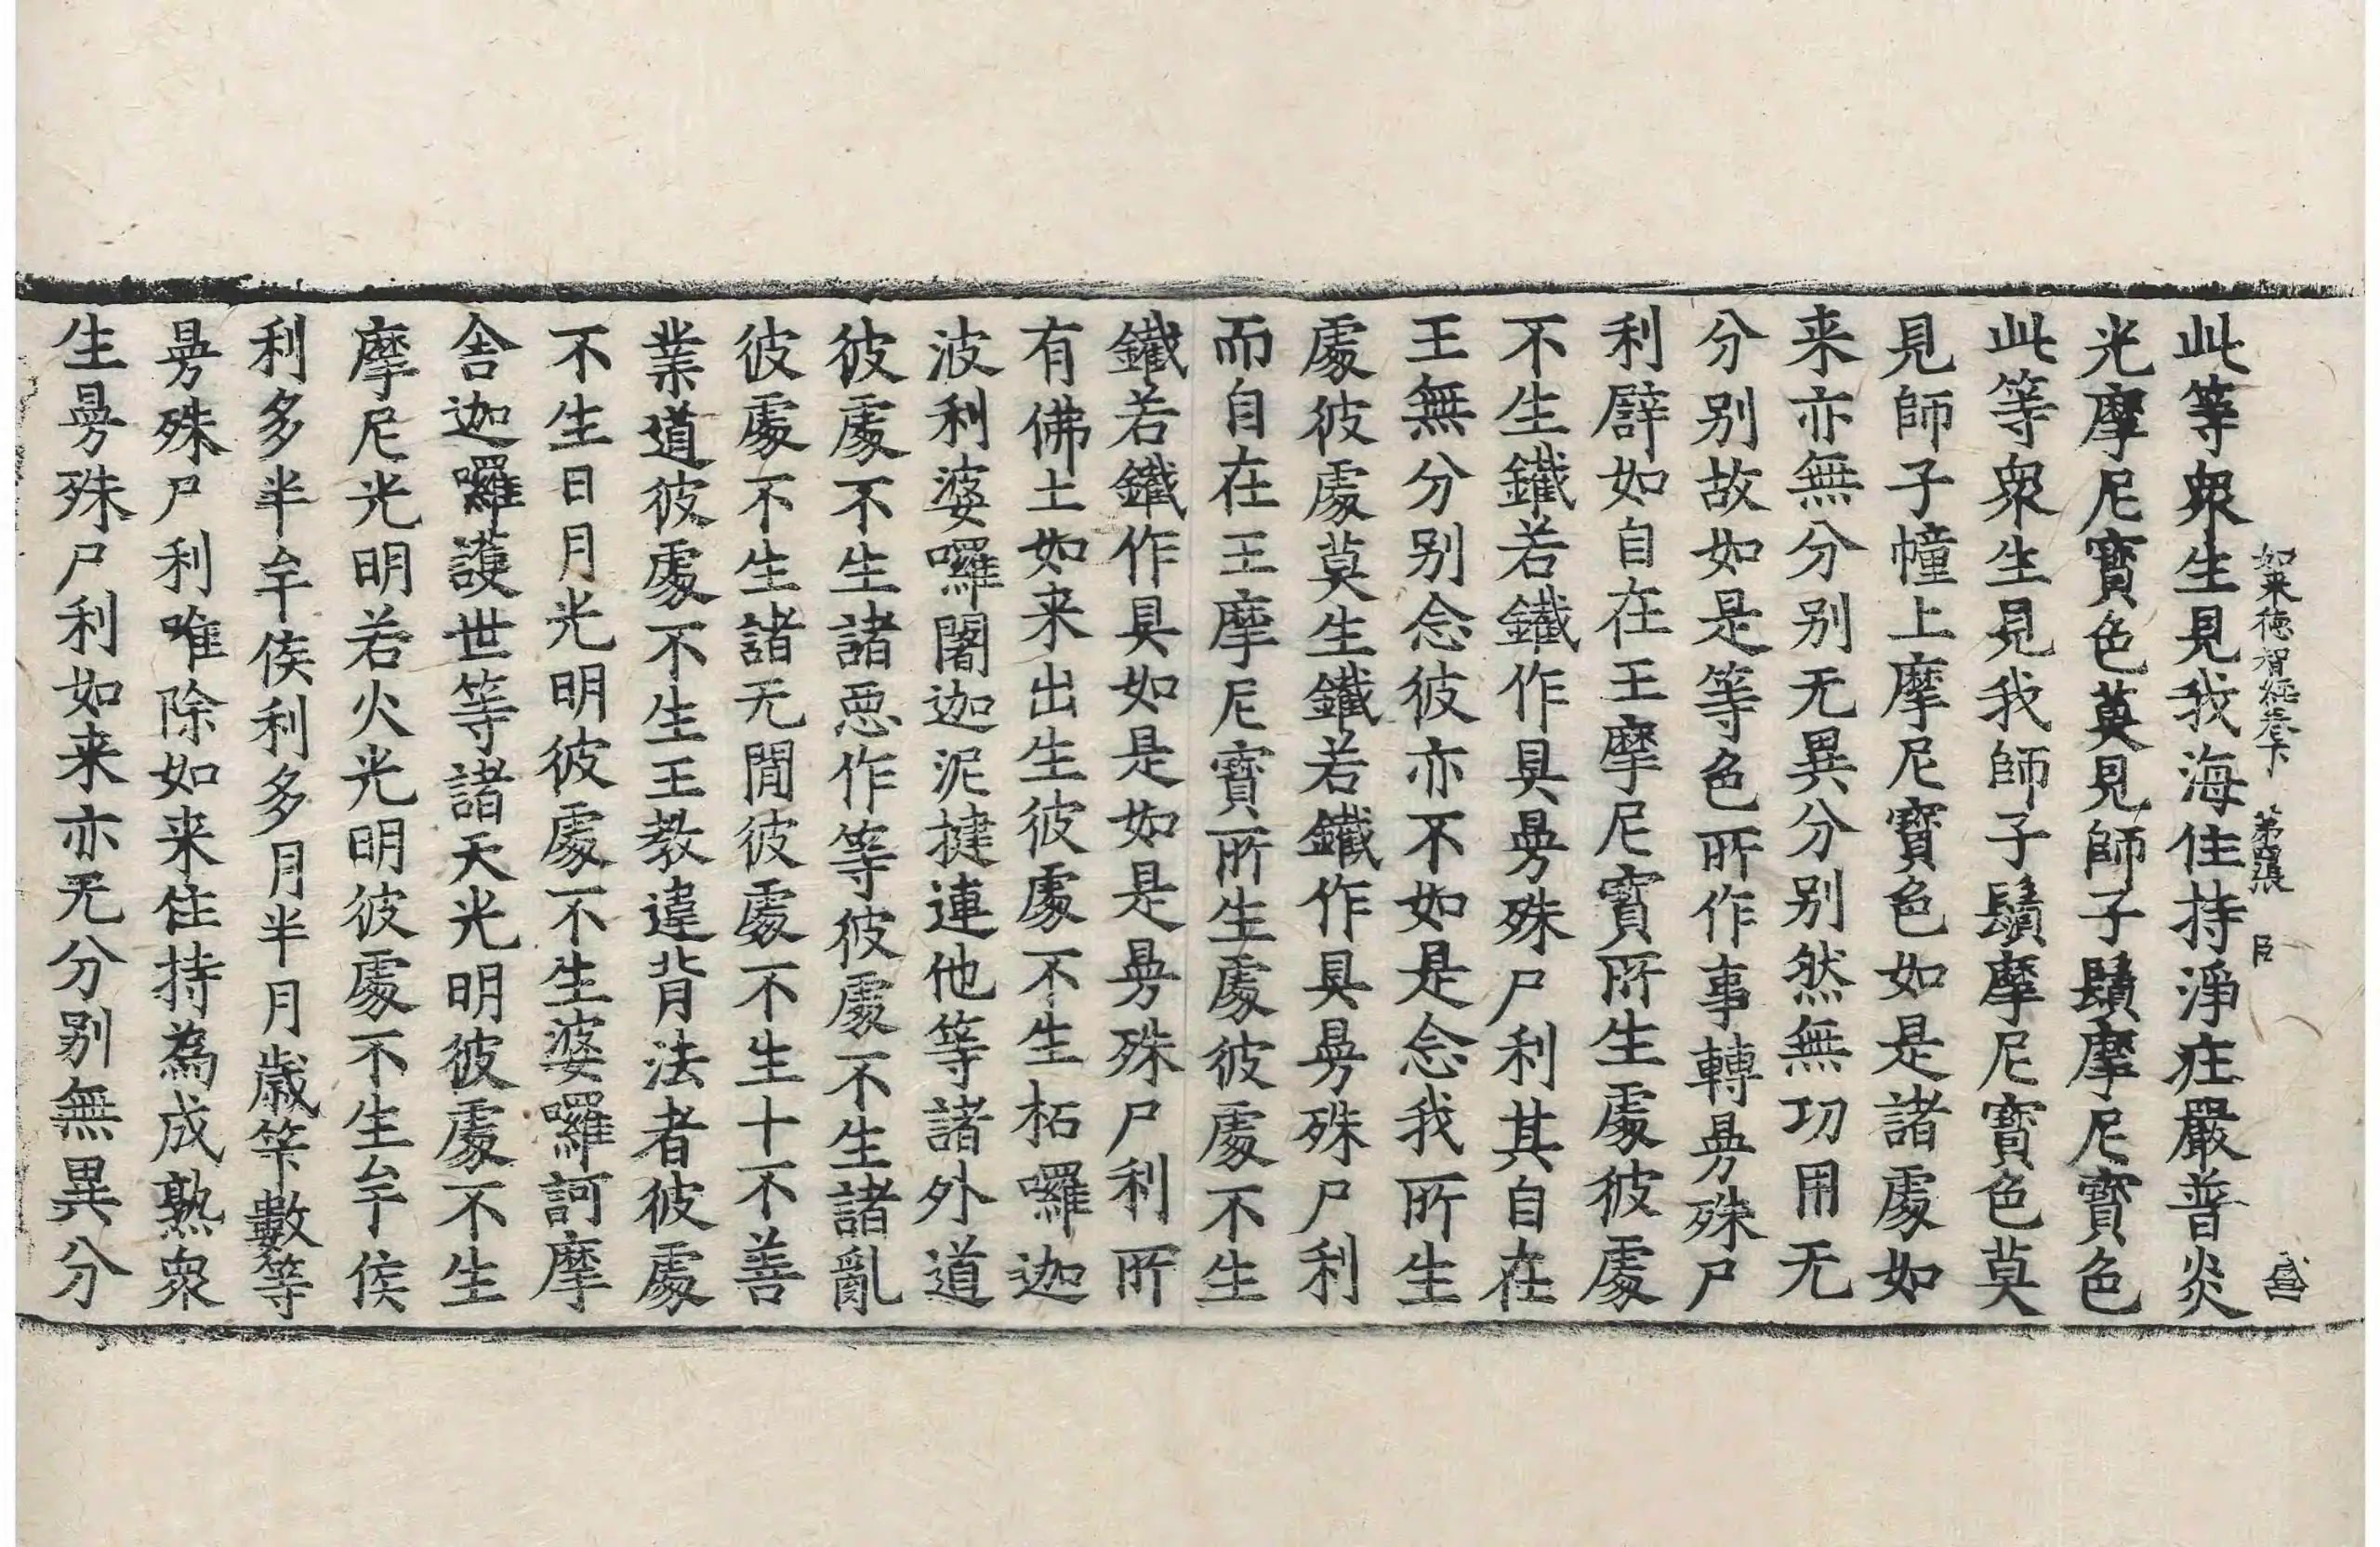 如来德智經卷下 第張 臣
此等衆生見我海住持淨庄嚴普炎
光摩尼寳色莫見師子鬚摩尼寳色
此等衆生見我師子鬚摩尼寳色莫
見師子幢上摩尼寳色如是諸處如
来亦無分别无異分别然無功用无
分别故如是等色所作事轉㬅殊尸
利譬如自在王摩尼寳所生處彼處
不生鐵若鐵作具㬅殊尸利其自在
王無分别念彼亦不如是念我所生
處彼處莫生鐵若鐵作具㬅殊尸利
而自在王摩尼寳所生處彼處不生
鐵若鐵作具如是如是㬅殊尸利所
有佛土如来出生彼處不生柘囉迦
波利婆囉闍迦泥揵連他等諸外道
彼處不生諸惡作等彼處不生諸亂
彼處不生諸无閒彼處不生十不善
業道彼處不生王教違背法者彼處
不生日月光明彼處不生婆囉訶摩
舍迦囉護世等諸天光明彼處不生
摩尼光明若火光明彼處不生牟侯
利多半牟侯利多月半月歲筭數等
㬅殊尸利唯除如来住持為成熟衆
生㬅殊尸利如来亦无分别無異分